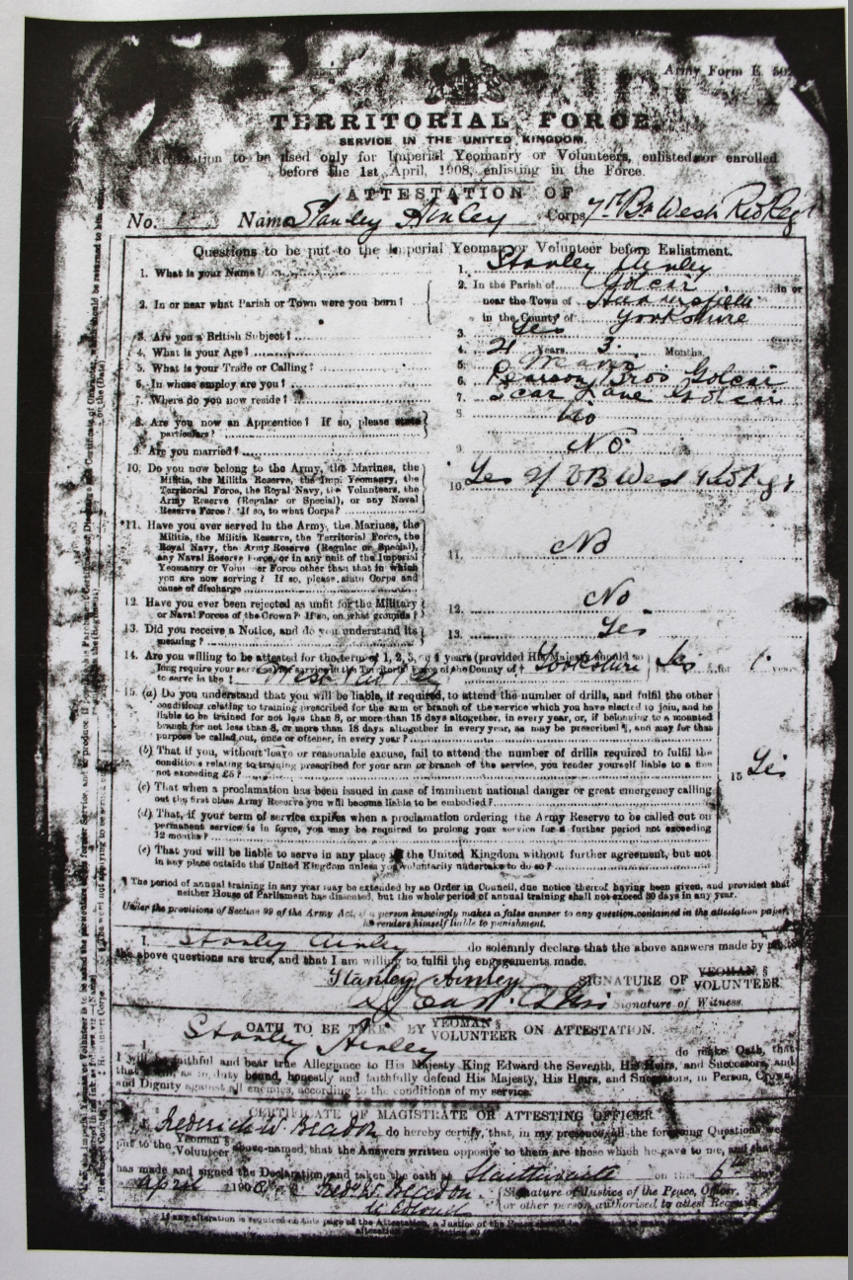 Army Form E. 50
TERRITORIAL FORCE.
SERVICE IN THE UNITED KINGDOM.
Attestation to be used only for Imperial Yeomanry or Volunteers, enlisted or enrolled
before the 1st April, 1908, enlisting in the Force.
ATTESTATION OF
No. Name Stanley Ainley Corps 7th Bn West Rid Regt
Questions to be put to the Imperial Yeoman or Volunteer before Enlistment.
1. What is your Name? 1. Stanley Ainley
2. In or near what Parish or Town were you born? 2. In the Parish of Golcar in or
near the Town of Huddersfield
in the County of Yorkshire
3. Are you a British Subject? 3. Yes
4. What is your Age? 4. 21 Years 3 Months
5. What is your Trade or Calling? 5. Weaver
6. In whose employ are you? 6. Pearson Bros Golcar
7. Where do you now reside? 7. Scar Lane Golcar
8. Are you now an Apprentice? If so, please state 8. No
particulars?
9. Are you married? 9. No
10. Do you now belong to the Army, the Marines, the
Militia, the Militia Reserve, the Imp. Yeomanry, the
Territorial Force, the Royal Navy, the Volunteers, the
Army Reserve (Regular or Special), or any Naval
Reserve Force? If so, to what Corps? 10. Yes 2/ VB West Rid Regt
*11. Have you ever served in the Army, the Marines, the
Militia, the Militia Reserve, the Territorial Force, the
Royal Navy, the Army Reserve (Regular or Special),
any Naval Reserve Force, or in any unit of the Imperial
Yeomanry or Volunteer Force other than that in which
you are now serving? If so, please state Corps and
cause of discharge 11. No
12. Have you ever been rejected as unfit for the Military
or Naval Forces of the Crown? If so, on what grounds? 12. No
13. Did you receive a Notice, and do you understand its
meaning? 13. Yes
14. Are you willing to be attested for the term of 1, 2, 3, or 4 years (provided His Majesty should so
long require your services) for service in the Territorial Force of the County of Yorkshire Yes for 1 years
to serve in the West
15. (a) Do you understand that you will be liable, if required, to attend the number of drills, and fulfil the other
conditions relating to training prescribed for the arm or branch of the service which you have elected to join, and be
liable to be trained for not less than 8, or more than 15 days altogether, in every year, or, if belonging to a mounted
branch for not less than 8, or more than 18 days altogether in every year, as may be prescribed ¶, and may for that
purpose be called out, once or oftener, in every year?
(b) That if you, without leave or reasonable excuse, fail to attend the number of drills required to fulfil the
conditions relating to training prescribed for your arm or branch of the service, you render yourself liable to a fine
not exceeding £5? 15 Yes
(c) That when a proclamation has been issued in case of imminent national danger or great emergency calling
out the first class Army Reserve you will become liable to be embodied?
(d) That, if your term of service expires when a proclamation ordering the Army Reserve to be called out on
permanent service is in force, you may be required to prolong your service for a further period not exceeding
12 months?
(e) That you will be liable to serve in any place in the United Kingdom without further agreement, but not
in any place outside the United Kingdom unless you voluntarily undertake to do so?
¶ The period of annual training in any year may be extended by an Order in Council, due notice thereof having been given, and provided that
neither House of Parliament has dissented, but the whole period of annual training shall not exceed 30 days in any year.
Under the provisions of Section 99 of the Army Act, if a person knowingly makes a false answer to any question contained in the attestation paper,
he renders himself liable to punishment.
I, Stanley Ainley do solemnly declare that the above answers made by me to
the above questions are true, and that I am willing to fulfil the engagements made.
Stanley Ainley SIGNATURE OF YEOMAN § VOLUNTEER
Signature of Witness.
OATH TO BE TAKEN BY YEOMAN § VOLUNTEER ON ATTESTATION.
I, Stanley Ainley do make Oath, that
I will be faithful and bear true Allegiance to His Majesty King Edward the Seventh, His Heirs, and Successors, and
that I will, as in duty bound, honestly and faithfully defend His Majesty, His Heirs, and Successors, in Person, Crown,
and Dignity against all enemies, according to the conditions of my service.
CERTIFICATE OF MAGISTRATE OR ATTESTING OFFICER
I, Frederick W. Beadon do hereby certify, that, in my presence, all the foregoing Questions were
put to the Yeoman § Volunteer above-named, that the Answers written opposite to them are those which he gave to me, and that he
has made and signed the Declaration, and taken the oath at Slaithwaite on this 6th day
April 1908 Fredk W. Beadon. (Signature of Justice of the Peace, Officer,
Lt Colonel or other person authorised to attest Recruits
If any alteration is required on this page of the Attestation, a Justice of the Peace should be